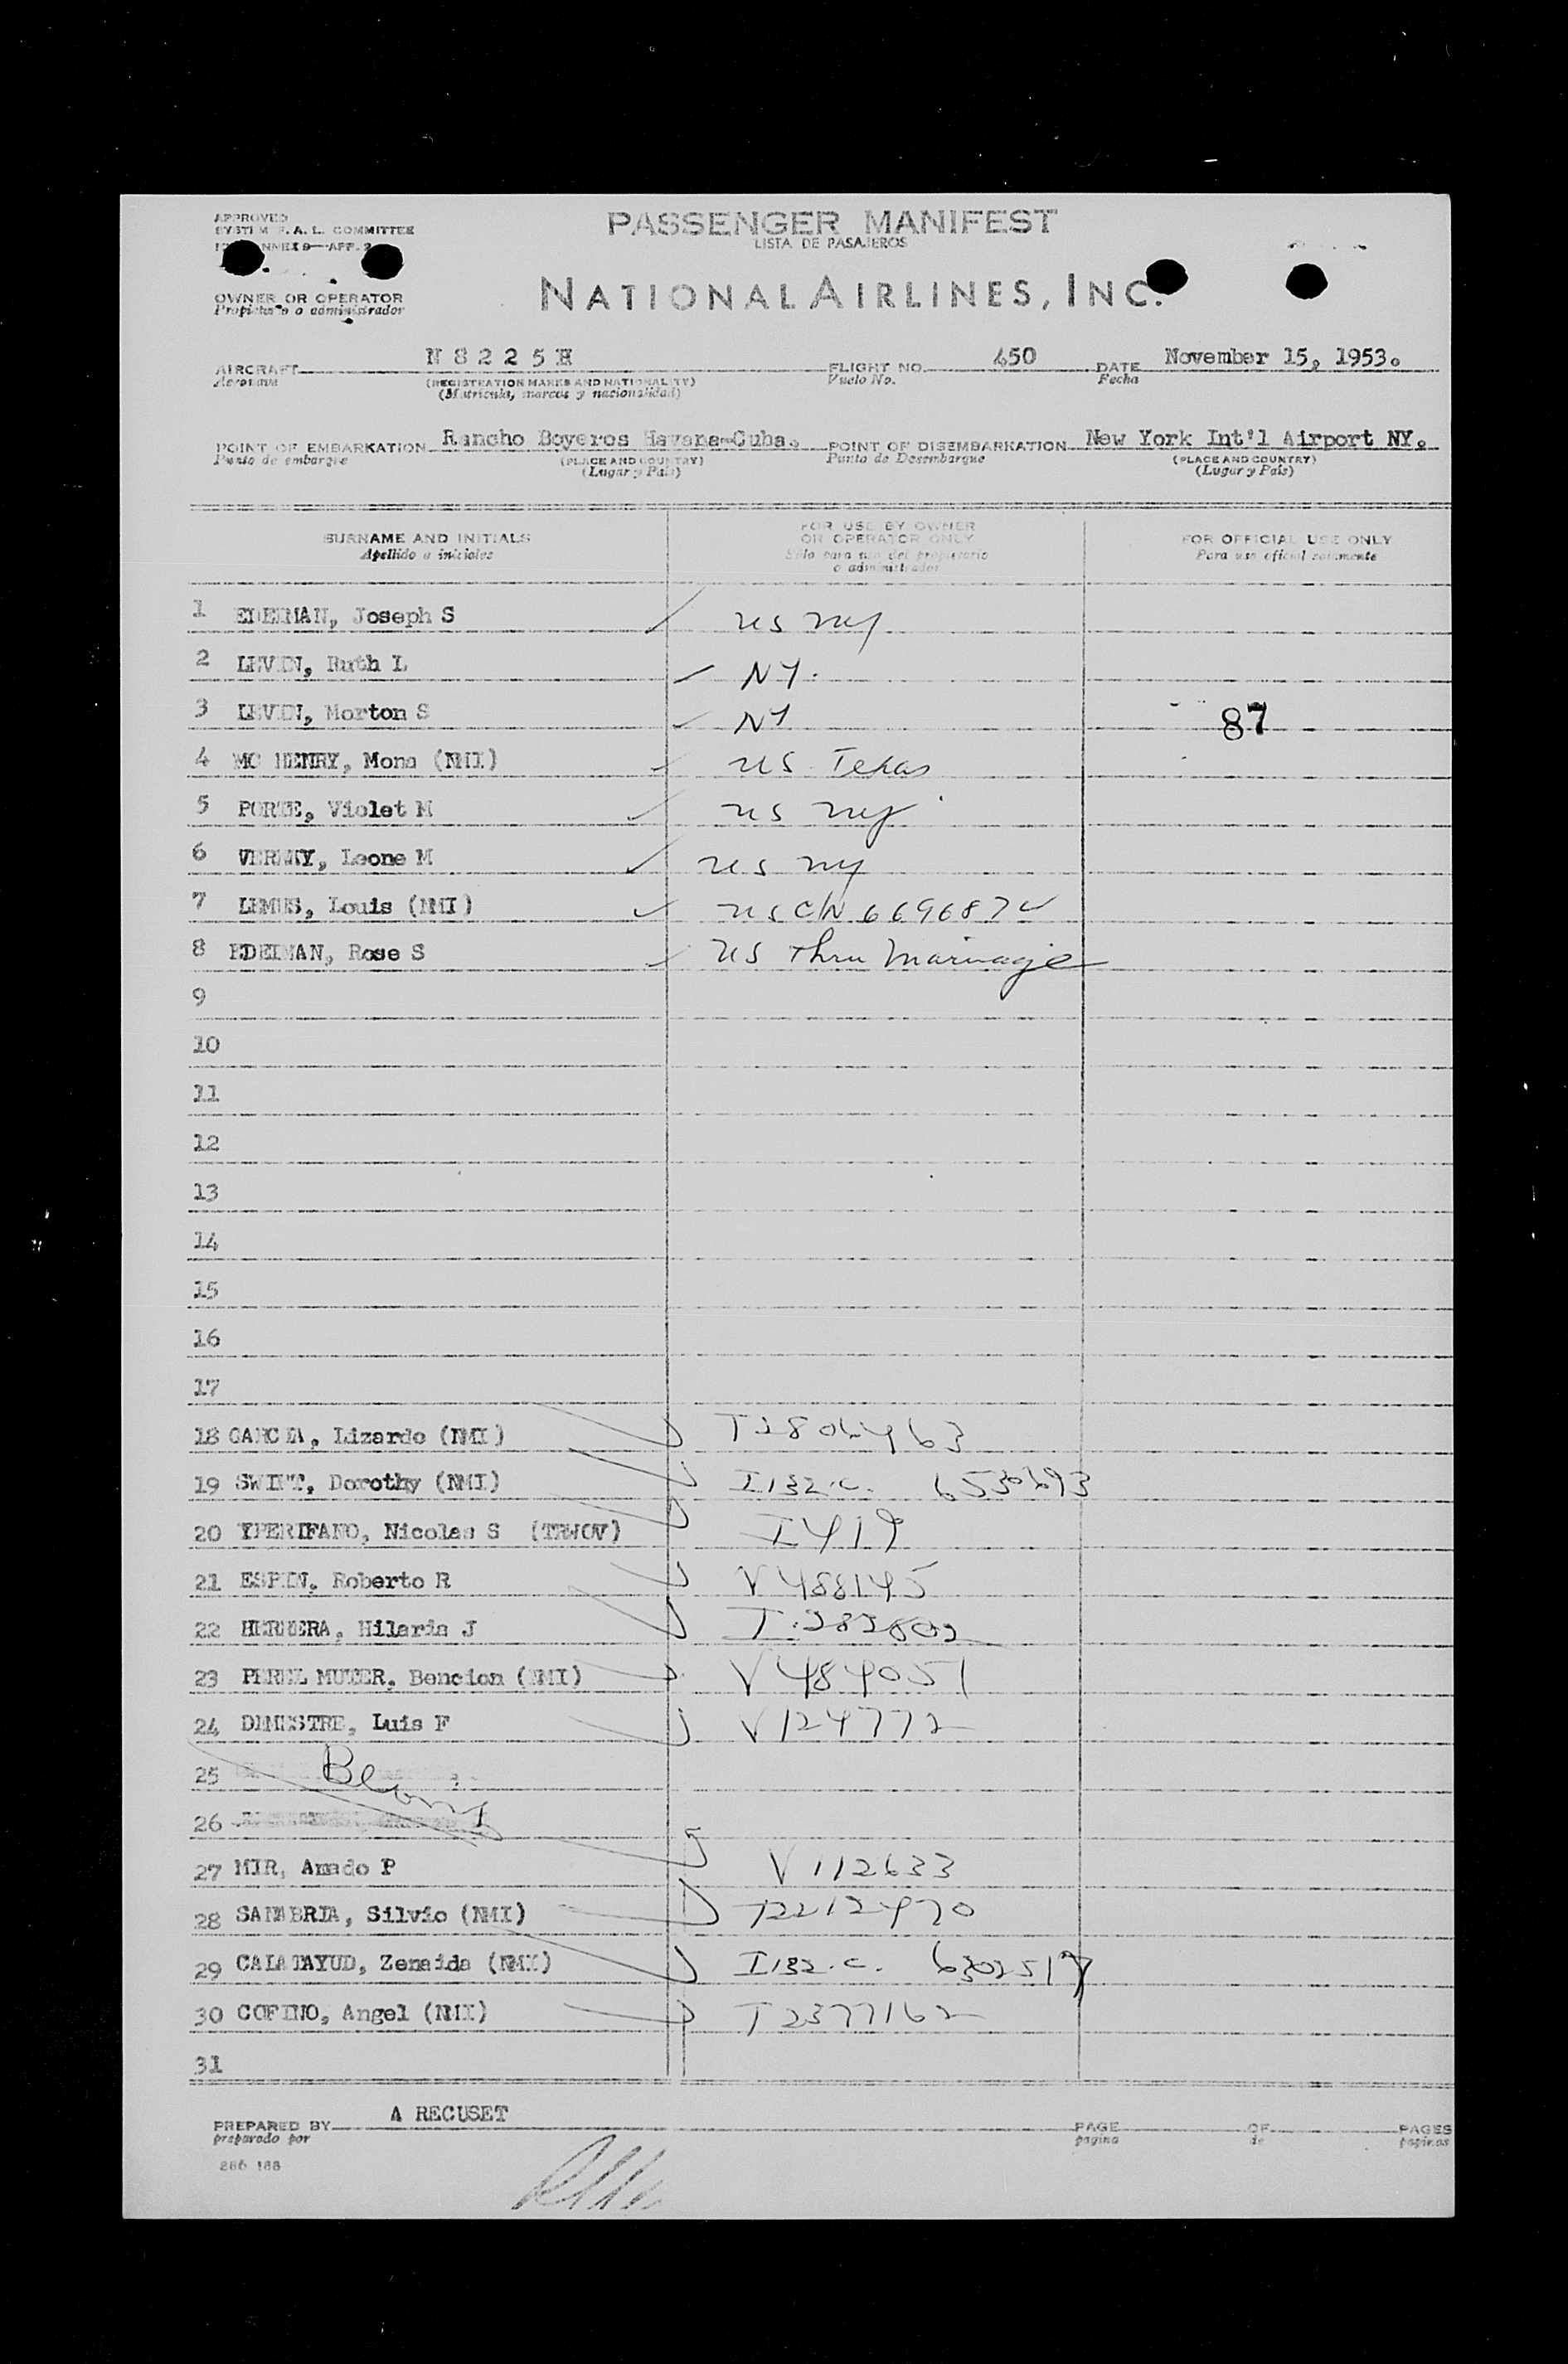 APPROVED
SYSTEM F. A. L. COMMITTEE
ANNEX 9—APP. 2
PASSENGER MANIFEST
LISTA DE PASAJEROS
NATIONAL AIRLINES, INC.
OWNER OR OPERATOR
Propietario o administrador
AIRCRAFT N 8 2 2 5 H FLIGHT NO. 450 DATE November 15, 1953.
Aeronave (REGISTRATION MARKS AND NATIONALITY) Vuelo No. Fecha
(Matricula, marcas y nacionalidad)
POINT OF EMBARKATION Rancho Boyeros Havana-Cuba. POINT OF DISEMBARKATION New York Int'l Airport NY.
Punto de embarque (PLACE AND COUNTRY) Punto de Desembarque (PLACE AND COUNTRY)
(Lugar y País) (Lugar y País)
SURNAME AND INITIALS FOR USE BY OWNER OR OPERATOR ONLY FOR OFFICIAL USE ONLY
Apellido e iniciales Sólo para uso del propietario o administrador Para uso oficial solamente
1 EDELMAN, Joseph S US NY
2 LEVIN, Ruth L NY.
3 LEVIN, Morton S NY 87
4 MC HENRY, Mona (NMI) US Texas
5 PORTE, Violet M US NY
6 Leone M US NY
7 LEMUS, Louis (NMI) US CN 6696872
8 EDELMAN, Rose S US thru Marriage
9
10
11
12
13
14
15
16
17
18 GARCIA, Lizardo (NMI)
19 SWIFT, Dorothy (NMI) I 132.c.
20 YPERIFANO, Nicolas S (TRWOV) I 419
21 ESPIN, Roberto R V 488145
22 HERRERA, Hilaria J
23 PEREL MUTER, Bencion (NMI) V 484051
24 DIMESTRE, Luis F V 124772
25
26
27 MIR, Amado P V 112633
28 SANABRIA, Silvio (NMI) T2212470
29 CALATAYUD, Zenaida (NMI) I 132.c. 6302517
30 COFINO, Angel (NMI) T 2377162
31
PREPARED BY A RECUSET PAGE OF PAGES
preparado por pagina de paginas
286 188